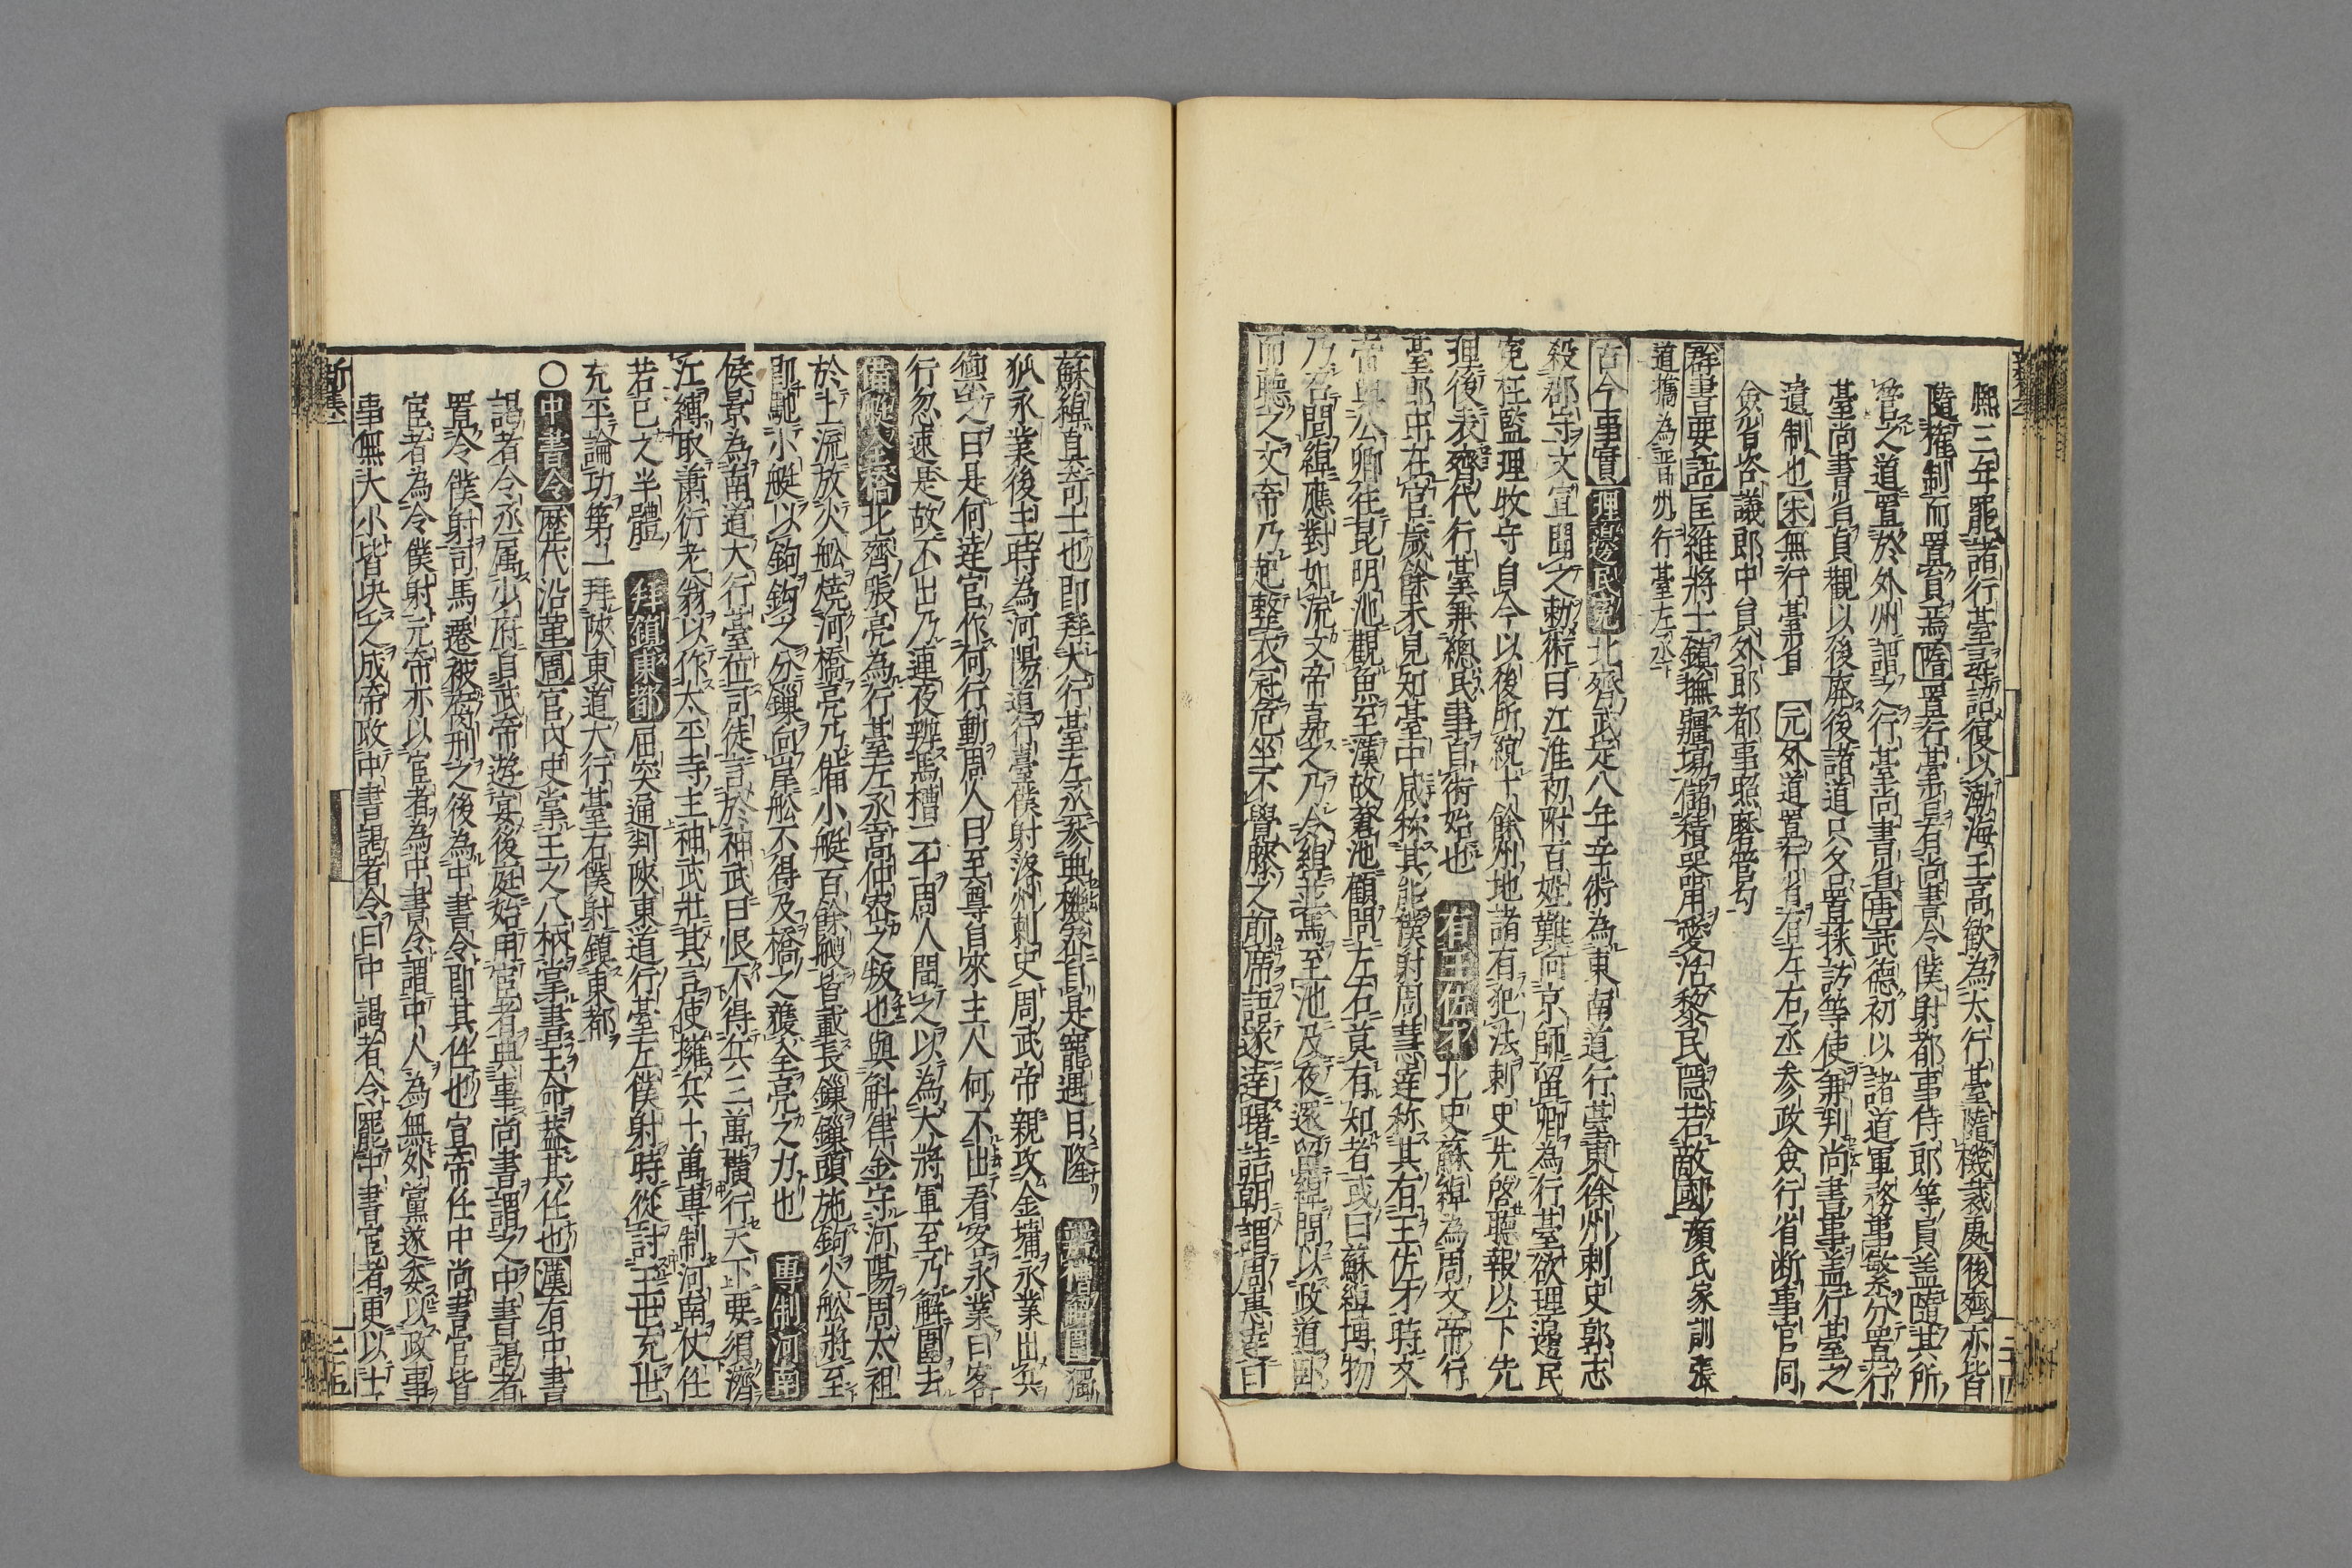 熙三年罷諸行臺尋詔復以渤海王高歡為大行臺隨機裁處後齊亦皆
隨權制而置員焉隋置行臺省有尚書令僕射都事侍郎等員盖隨其所
管之道置於外州謂之行臺尚書省唐武德初以諸道軍務事繁分置行
臺尚書省貞觀以後廢後諸道只名置採訪等使兼判尚書事盖行臺之
遺制也宋無行臺省元外道置行省有左右丞參政僉行省断事官同
僉省咨議郎中員外郎都事照磨管勾
群書要語匡維將士鎮撫疆埸儲積器用愛活黎民隱若敵國顔氏家訓張
道摛為晋州行臺左丞
古今事實理邊民冤北齊武定八年辛術為東南道行臺東徐州刺史郭志
殺郡守文宣聞之勅術曰江淮初附百姓難向京師留卿為行臺欲理邊民
冤枉監理牧守自今以後所統十餘州地諸有犯法刺史先啓聽報以下先
理後表齊代行臺兼總民事自術始也有王佐才北史蘇綽為周文帝行
臺郎中在官歲餘未見知臺中咸称其能僕射周慧達称其有王佐才時文
帝與公卿往昆明池觀魚至漢故倉池顧問左右莫有知者或曰蘇綽博物
乃召問綽應對如流文帝嘉之乃令綽並馬至池及夜還留綽問以政道卧
而聽之文帝乃起整衣冠危坐不覺膝之前席語遂達曙詰朝謂周惠達曰
蘇綽真奇士也即拜大行臺左丞參典機密自是寵遇日隆 解圍獨
狐永業後主時為河陽道行臺僕射洛州刺史周武帝親攻金墉永業出兵
禦之曰是何達官作何行動周人曰至尊自來主人何不出看客永業曰客
行忽速是故不出乃連夜辦馬槽二千周人聞之以為大將軍至乃解圍去
備艇全橋北齊張亮為行臺左丞高仲密之叛也與斛律金守河陽周太祖
於上流放火舩燒河橋亮乃備小艇百餘艘皆載長鏁鏁頭施鉤火舩將至
即馳小艇以鉤鉤之分鏁向岸舩不得及橋之獲全亮之力也專制河南
侯景為南道大行臺位司徒言於神武曰恨不得兵三萬橫行天下要須濟
江縛取蕭衍老翁以作太平寺主神武壯其言使擁兵十萬專制河南仗任
若已之半體拜鎮東都屈突通判陝東道行臺左僕射時從討王世充世
充平論功第一拜陝東道大行臺右僕射鎮東都
〇中書令歷代沿革周官内史掌王之八柄掌書王命葢其任也漢有中書
謁者令丞属少府自武帝遊宴後庭始用宦者典事尚書謂之中書謁者
置令僕射司馬遷被腐刑之後為中書令即其任也宣帝任中尚書官皆
宦者為令僕射元帝亦以宦者為中書令謂中人為無外黨遂委以政事
事無大小皆决之成帝政中書謁者令曰中謁者令罷中書宦者更以士